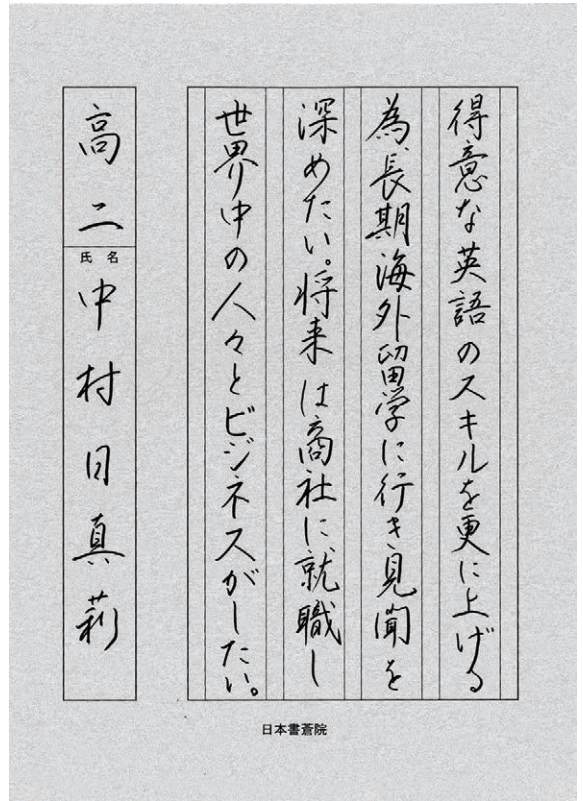 得意な英語のスキルを更に上げる
為、長期海外留学に行き見聞を
深めたい。将来は商社に就職し
世界中の人々とビジネスがしたい。
高二
氏名
中村日真莉
日本書蒼院